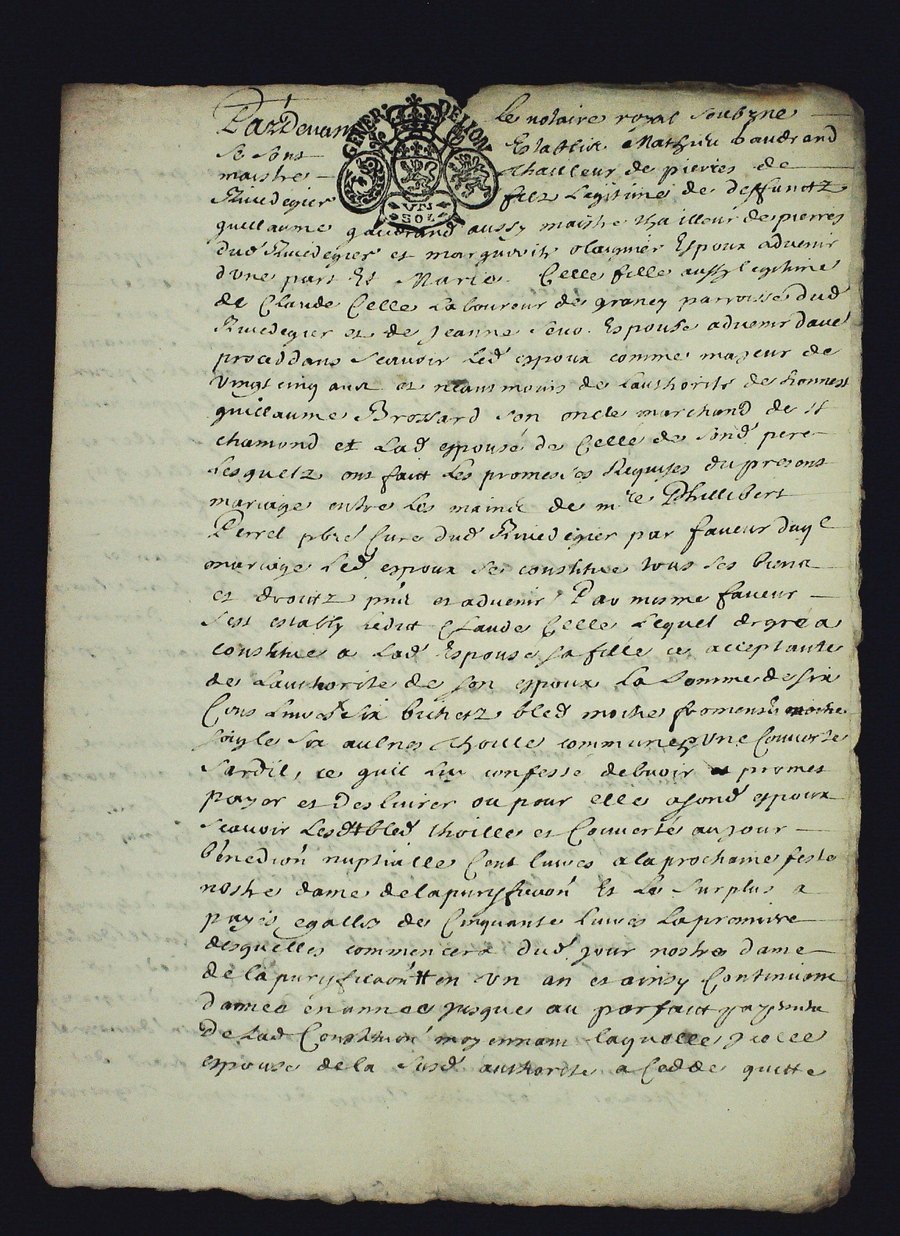 GENER. DE LION
UN
SOL
Pardevant le notaire royal soubzne
se sont Establis Mathieu Gaudrand
maistre Thailleur de pierres de
Rivedegier filz Legitime de deffunctz
guillaume gaudrand aussy maistre thailleur de pierres
dud Rivedegier et marguerite Espoux advenir
dune part Et Marie Celle fille aussy legitime
de Claude Celle Laboureur de graney parroisse dud
Rivedegier et de Jeanne Espouse advenir dautre
proceddans scavoir led espoux comme majeur de
vingt cinq ans et neantmoins de lauthorité de honnest
guillaume Brossard son oncle marchand de st
chamond et lad espouse de Celle de sond pere
Lesquelz ont faict les promesses Requises du present
mariage entre les mains de mre Phillibert
Perrel pbre Cure dud Rivedegier par faveur duql
mariage led espoux se constitue tous ses biens
et droictz pnts et advenir Par mesme faveur
sest estably ledict Claude Celle Lequel de gré a
constitue a lad Espouse sa fille ce acceptante
de lauthorite de son espoux La somme de six
Cens livres six bichetz bled moitie froment moitie
soigle six aulnes thoille commune une Couverte
sardil, ce quil luy confesse debvoir promet
payer et deslivrer ou pour elle a sond espoux
scavoir lesd bled thoille et Couverte au jour
bénédion nuptialle Cent livres a la prochaine feste
nostre dame de la purifficaon Et Le surplus a
payes egalles de Cinquante livres La premiere
desquelles commencera dud jour nostre dame
de la puryficaon en un an et ainsy Continuant
dannée en année jusques au parfaict payement
de lad Constituon moyennant laquelle Icelle
espouse de la susd authorite a Cedde quitte